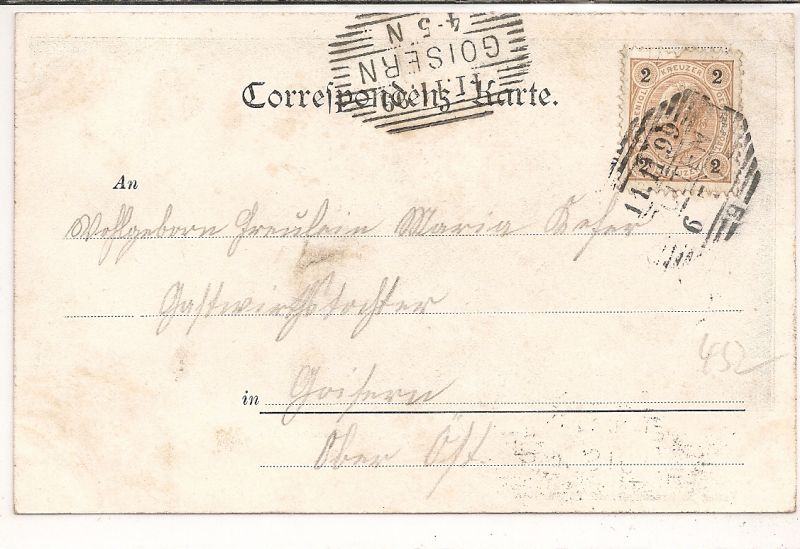 GOISERN
4-5 N
Correspondenz-Karte.
2 KREUZER 2
2 2
11.11.99
6
An
Wohlgeborn Freulein Maria Kefer
Gastwirthstochter
in Goisern
Ober Öst.
452